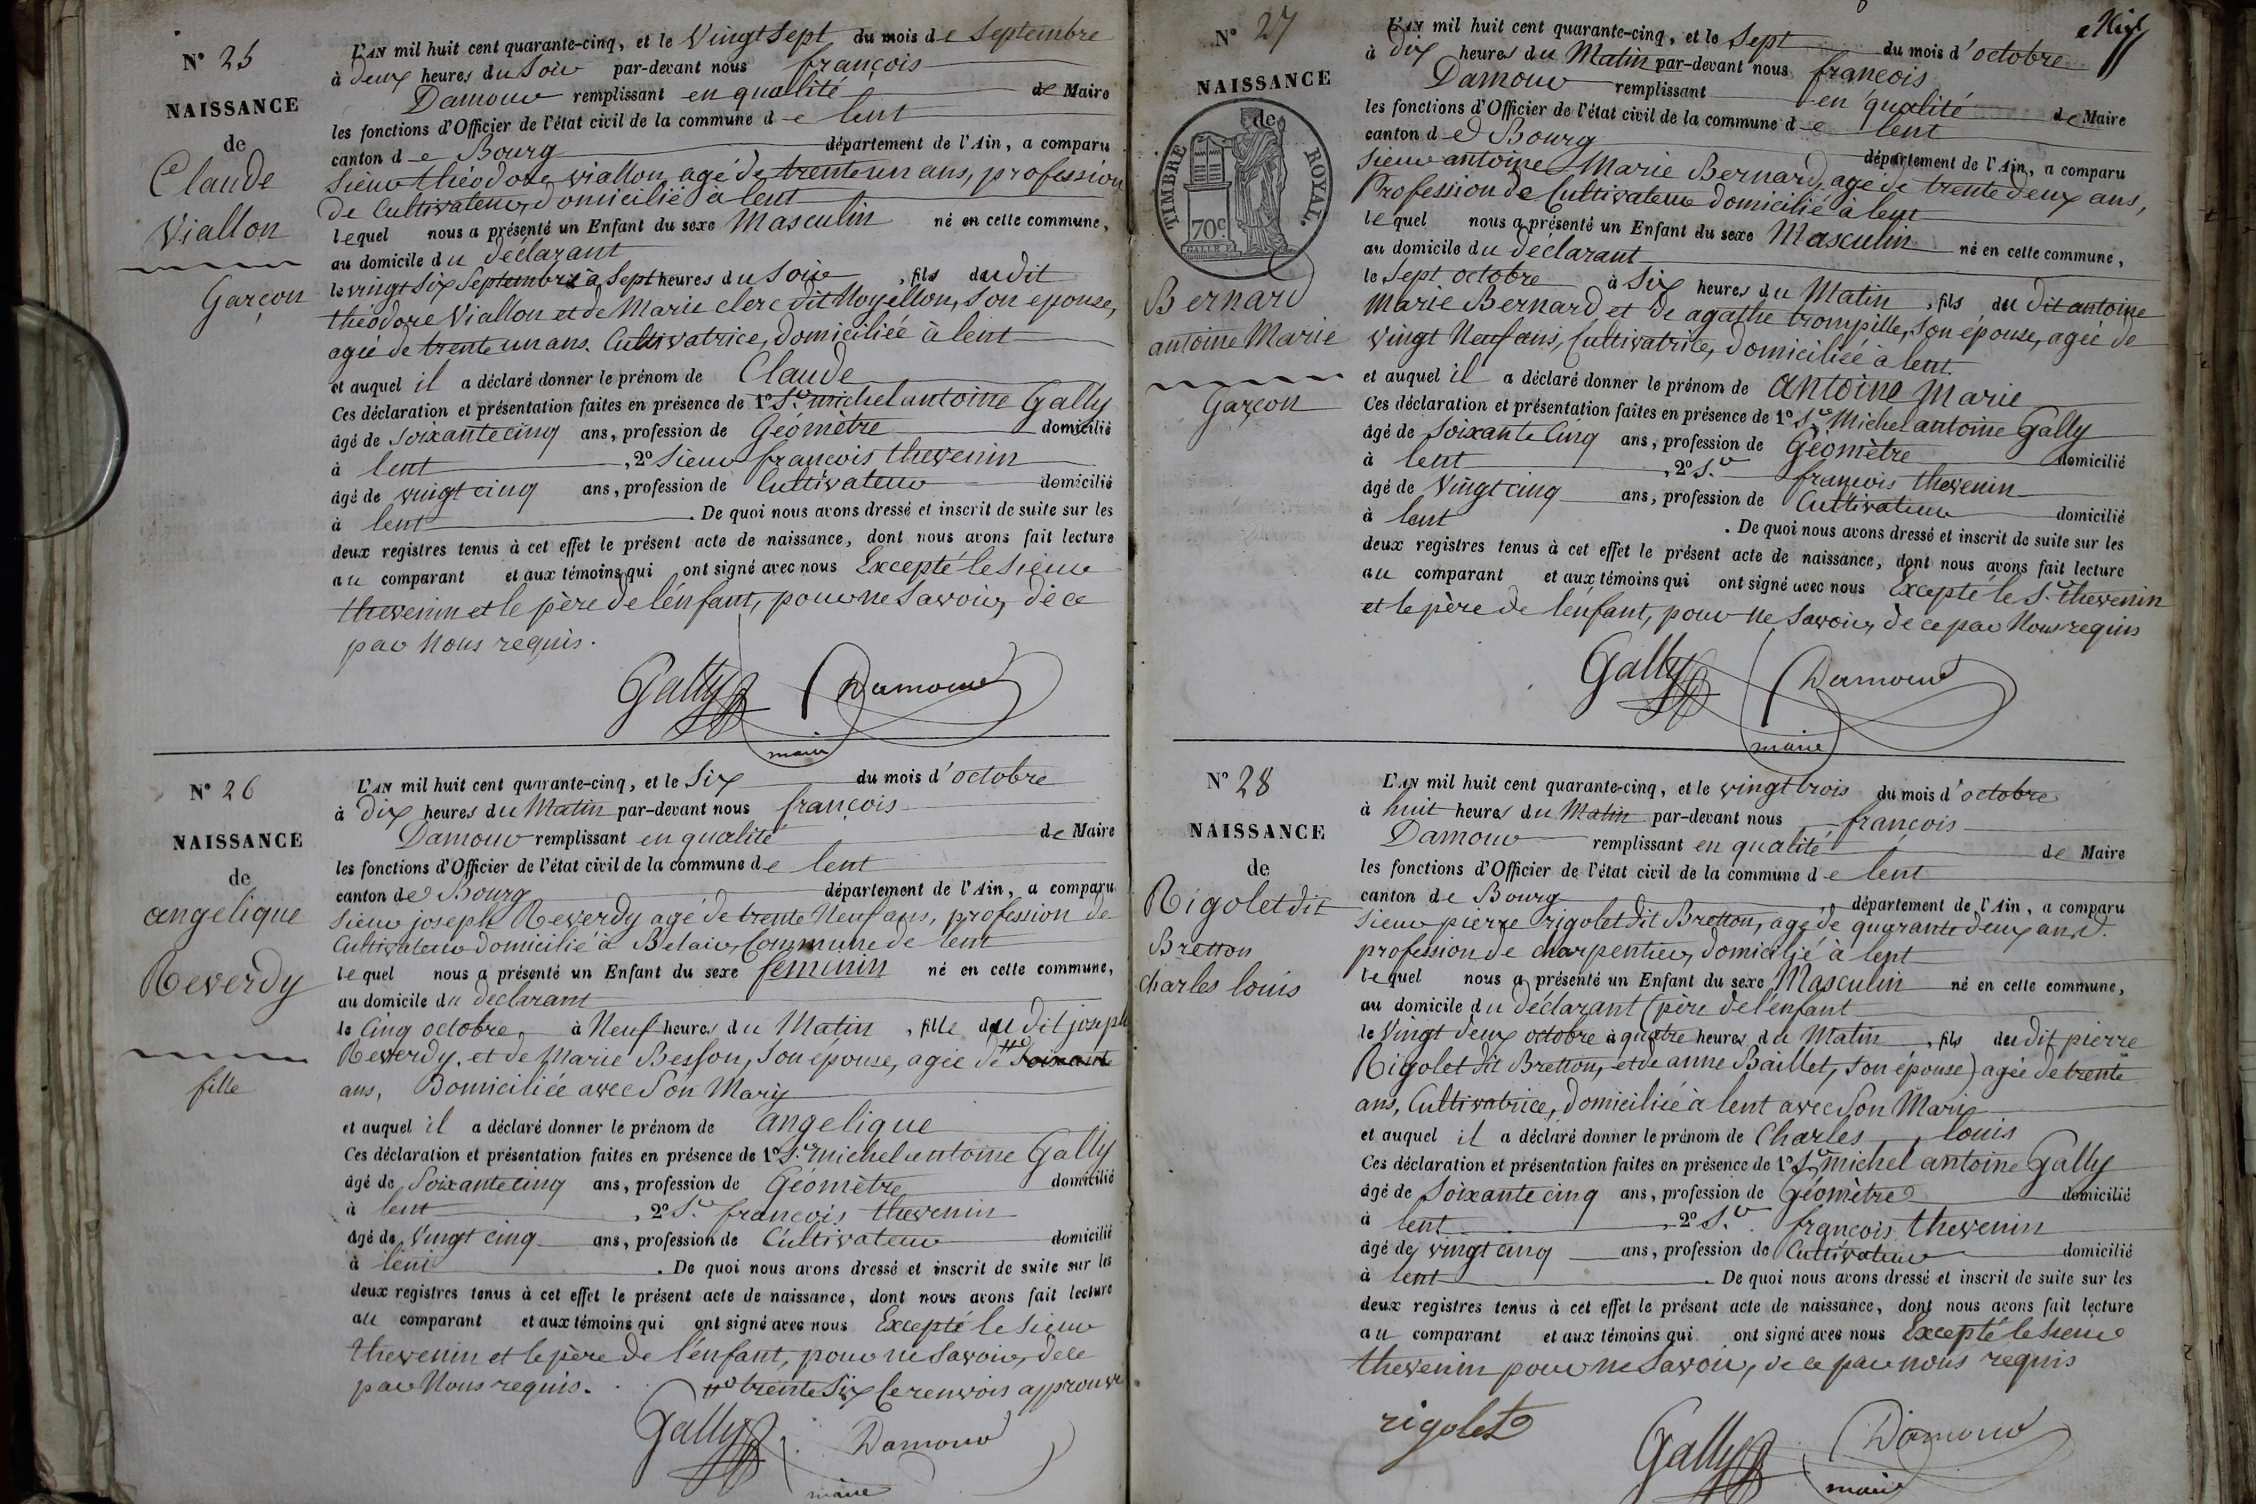 N° 25
NAISSANCE
de
Claude
Viallon
Garçon
L'AN mil huit cent quarante-cinq, et le Vingt Sept du mois de Septembre
à deux heures du Soir par-devant nous françois
Damour remplissant en qualité de Maire
les fonctions d'Officier de l'état civil de la commune de lent
canton de Bourg département de l'Ain, a comparu
Sieur théodore viallon, agé de trente un ans, profession
de Cultivateur, domicilié à lent
lequel nous a présenté un Enfant du sexe Masculin né en cette commune,
au domicile du déclarant
le vingt Six Septembre à Sept heures du Soir, fils du dit
théodore Viallon et de Marie clerc dit Noyellon, Son epouse,
agée de trente un ans. Cultivatrice, domiciliée à lent
et auquel il a déclaré donner le prénom de Claude
Ces déclaration et présentation faites en présence de 1° Sr michel antoine Gally
âgé de soixante cinq ans, profession de Géomètre domicilié
à lent, 2° Sieur françois thevenin
âgé de vingt cinq ans, profession de Cultivateur domicilié
à lent. De quoi nous avons dressé et inscrit de suite sur les
deux registres tenus à cet effet le présent acte de naissance, dont nous avons fait lecture
au comparant et aux témoins qui ont signé avec nous Excepté le Sieur
thevenin et le père de l'énfant, pour ne Savoir, de ce
par Nous requis.
Gally Damour
maire
N° 26
NAISSANCE
de
angelique
Reverdy
fille
L'AN mil huit cent quarante-cinq, et le Six du mois d'octobre
à Dix heures du Matin par-devant nous françois
Damour remplissant en qualité de Maire
les fonctions d'Officier de l'état civil de la commune de lent
canton de Bourg département de l'Ain, a comparu
Sieur joseph Reverdy agé de trente Neuf ans, profession de
Cultivateur domicilié à Belair, Commune de lent
lequel nous a présenté un Enfant du sexe feminin né en cette commune,
au domicile du déclarant
le Cinq octobre, à Neuf heures du Matin, fille du dit joseph
Reverdy, et de Marie Besson, Son épouse, agée de
ans, Domiciliée avec Son Mary
et auquel il a déclaré donner le prénom de angelique
Ces déclaration et présentation faites en présence de 1° Sr michel antoine Gally
âgé de Soixante cinq ans, profession de Géomètre domicilié
à lent, 2° Sr françois thevenin
âgé de Vingt cinq ans, profession de Cultivateur domicilié
à lent. De quoi nous avons dressé et inscrit de suite sur les
deux registres tenus à cet effet le présent acte de naissance, dont nous avons fait lecture
au comparant et aux témoins qui ont signé avec nous Excepté le Sieur
thevenin et le père de l'énfant, pour ne Savoir, de ce
par Nous requis. trente Six le renvois approuvé
Gally Damour
maire
N° 27
NAISSANCE
de
TIMBRE ROYAL
70c
Bernard
antoine Marie
Garçon
L'AN mil huit cent quarante-cinq, et le Sept du mois d'octobre
à Dix heures du Matin par-devant nous françois
Damour remplissant en qualité de Maire
les fonctions d'Officier de l'état civil de la commune de lent
canton de Bourg département de l'Ain, a comparu
Sieur antoine Marie Bernard, agé de trente deux ans,
Profession de Cultivateur domicilié à lent
lequel nous a présenté un Enfant du sexe Masculin né en cette commune,
au domicile du déclarant
le Sept octobre à Six heures du Matin, fils du dit antoine
Marie Bernard, et de agathe trompille, Son épouse, agée de
vingt Neuf ans, Cultivatrice, domiciliée à lent
et auquel il a déclaré donner le prénom de antoine Marie
Ces déclaration et présentation faites en présence de 1° Sr Michel antoine Gally
âgé de Soixante Cinq ans, profession de Géomètre domicilié
à lent, 2° Sr françois thevenin
âgé de Vingt cinq ans, profession de Cultivateur domicilié
à lent. De quoi nous avons dressé et inscrit de suite sur les
deux registres tenus à cet effet le présent acte de naissance, dont nous avons fait lecture
au comparant et aux témoins qui ont signé avec nous Excepté le Sr thevenin
et le père de l'énfant, pour ne Savoir, de ce par Nous requis
Gally Damour
maire
N° 28
NAISSANCE
de
Rigolet dit
Bretton
charles louis
L'AN mil huit cent quarante-cinq, et le vingt trois du mois d'octobre
à huit heures du Matin par-devant nous françois
Damour remplissant en qualité de Maire
les fonctions d'Officier de l'état civil de la commune de lent
canton de Bourg département de l'Ain, a comparu
Sieur pierre rigolet dit Bretton, agé de quarante deux ans.
profession de charpentier, domicilié à lent
lequel nous a présenté un Enfant du sexe Masculin né en cette commune,
au domicile du déclarant (père de l'énfant
le Vingt deux octobre à quatre heures du Matin, fils du dit pierre
Rigolet dit Bretton, et de anne Baillet, son épouse) agée de trente
ans, Cultivatrice, domiciliée à lent avec Son Mari
et auquel il a déclaré donner le prénom de Charles louis
Ces déclaration et présentation faites en présence de 1° Sr michel antoine Gally
âgé de Soixante cinq ans, profession de Géomètre domicilié
à lent, 2° Sr françois thevenin
âgé de vingt cinq ans, profession de Cultivateur domicilié
à lent. De quoi nous avons dressé et inscrit de suite sur les
deux registres tenus à cet effet le présent acte de naissance, dont nous avons fait lecture
au comparant et aux témoins qui ont signé avec nous Excepté le Sieur
thevenin pour ne Savoir, de ce par nous requis
rigolet Gally Damour
maire